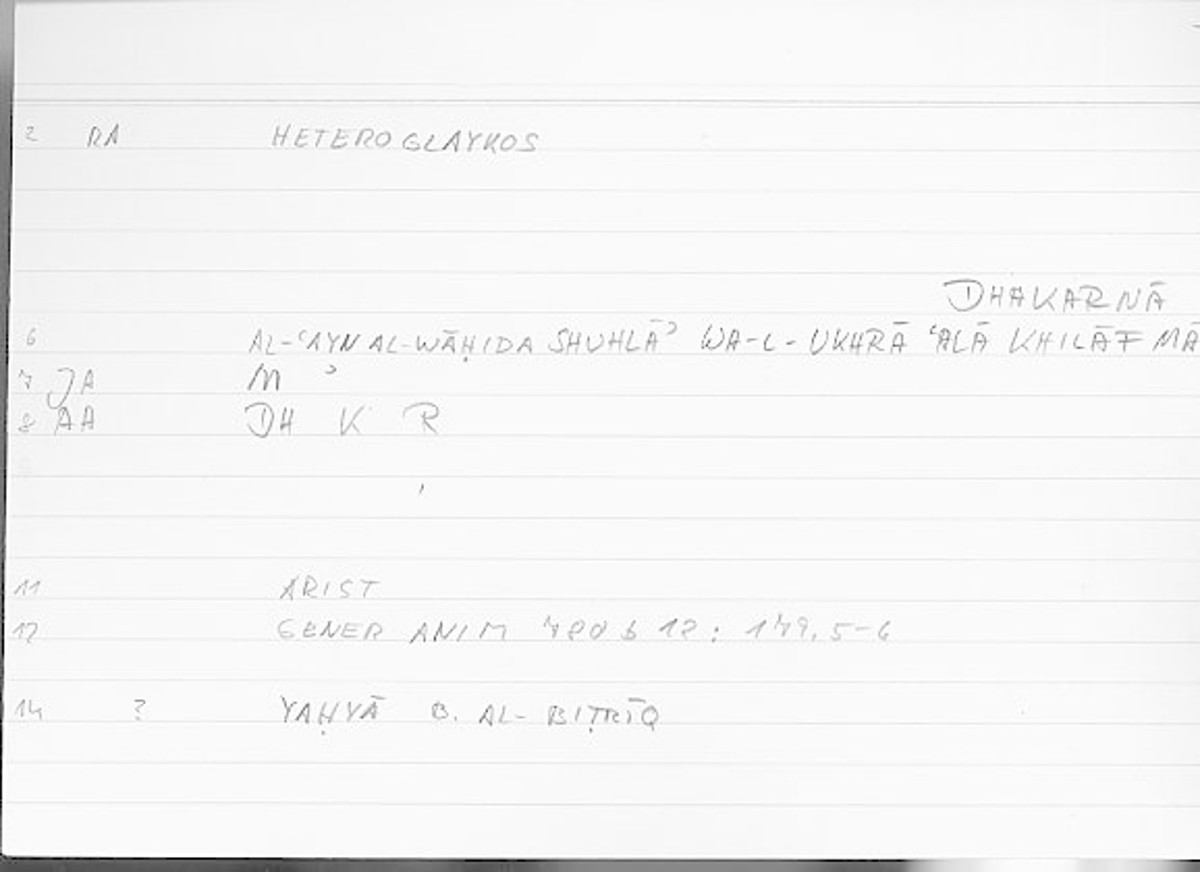 2 RA HETEROGLAYKOS
DHAKARNĀ
6 AL-ʿAYN AL-WĀḤIDA SHUHLĀʾ WA-L-UKHRĀ ʿALĀ KHILĀF MA
7 JA M ʾ
8 AA DH K R
11 ARIST
12 GENER ANIM 780 b 12: 179, 5-6
14 ? YAḤYĀ B. AL-BIṬRĪQ